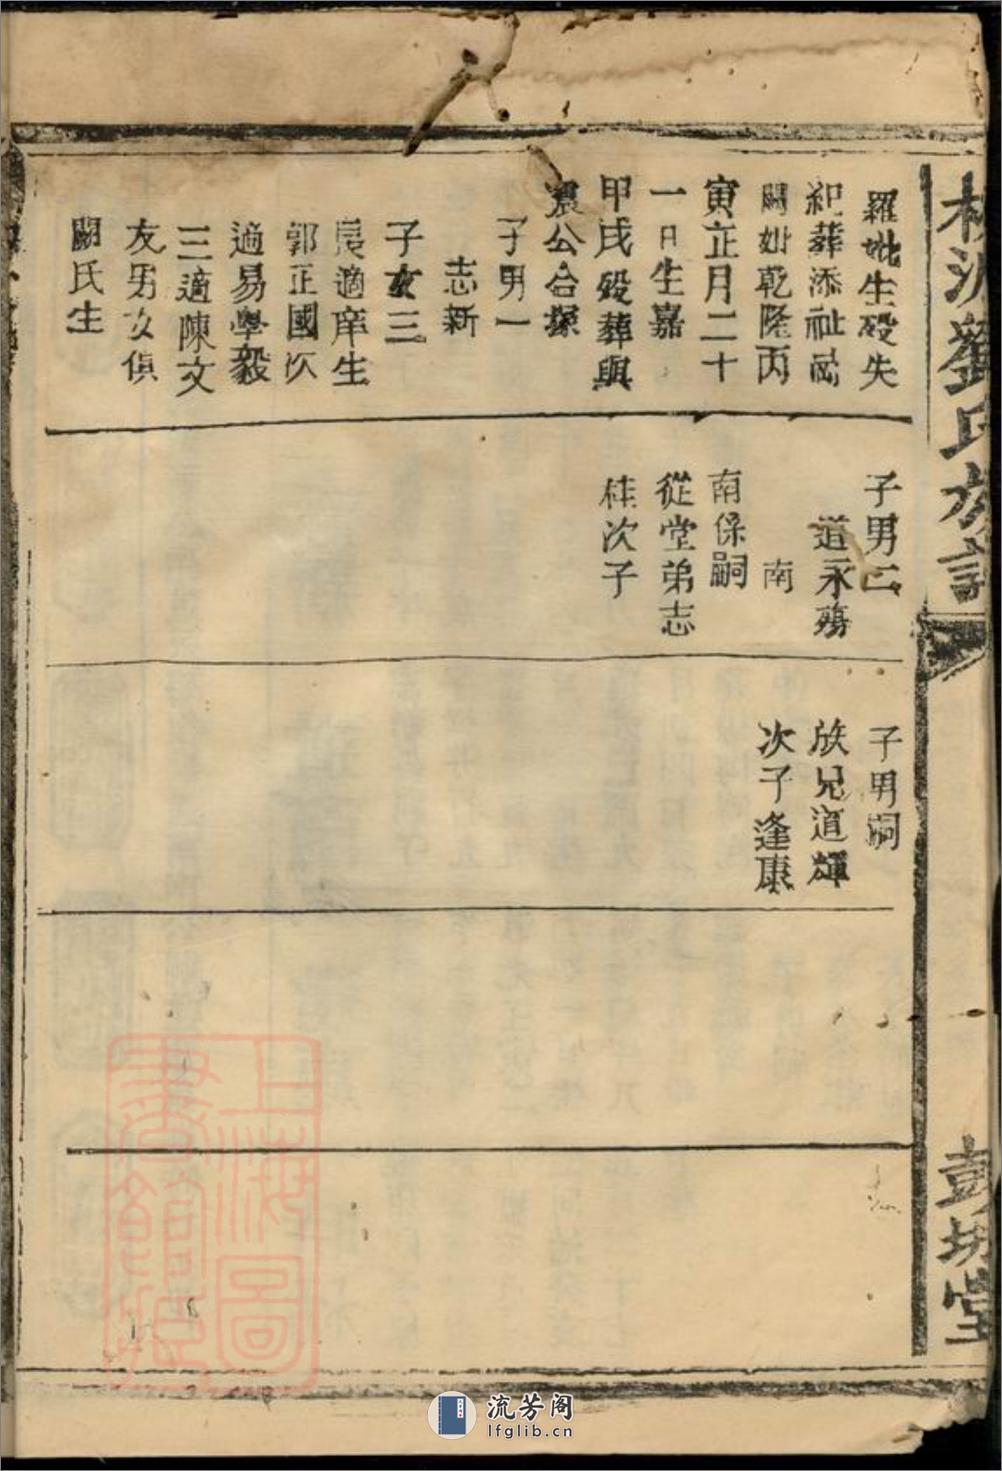 劉氏族譜
彭坊堂
羅妣生歿失
紀葬添祉岡
闕妣乾隆丙
寅正月二十
一日生嘉
甲戌歿葬與
震公合塚
子男一
志新
子女三
長適庠生
郭正國次
適易學毅
三適陳文
友男女俱
闕氏生
子男二
道永殤
南
南保嗣
從堂弟志
桂次子
子男嗣
族兄道輝
次子逢康
上海圖
書館藏
流芳阁
lfglib.cn